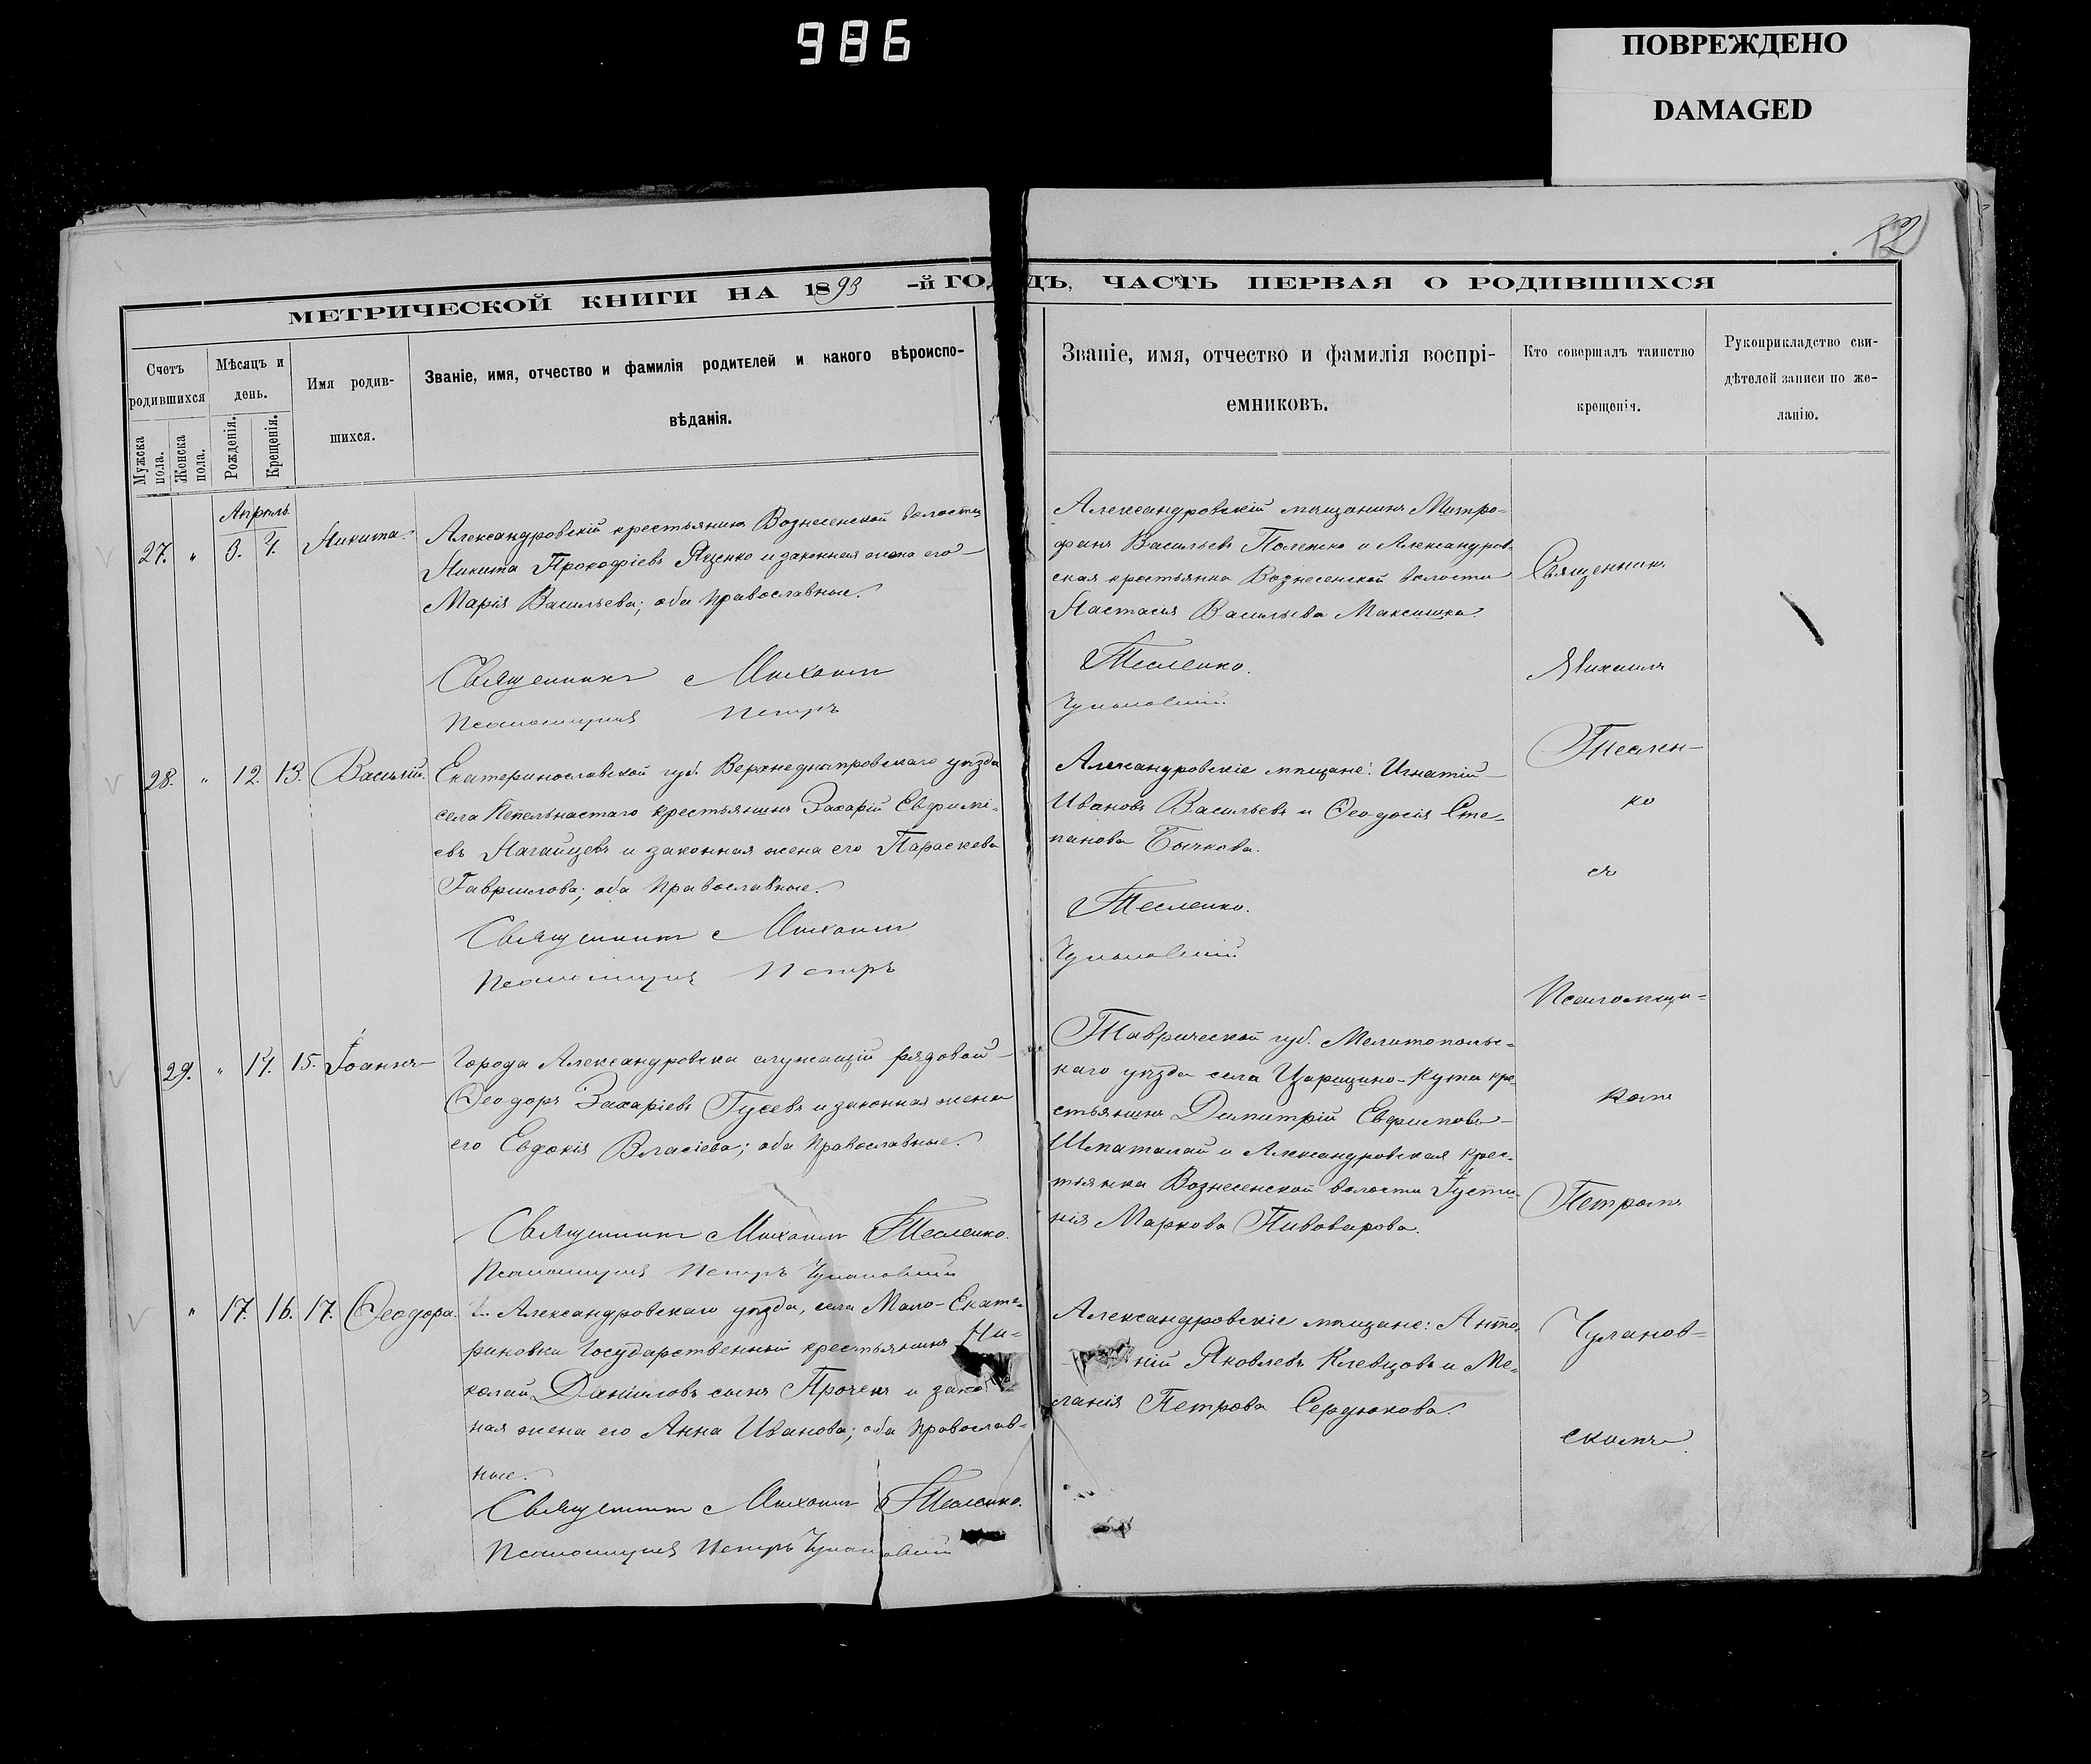 986
ПОВРЕЖДЕНО
DAMAGED
МЕТРИЧЕСКОЙ КНИГИ НА 1893 -й ГОДЪ, ЧАСТЬ ПЕРВАЯ О РОДИВШИХСЯ
Счетъ родившихся
Мужска пола.
Женска пола.
Мѣсяцъ и день.
Рожденія.
Крещенія.
Имя родив-
шихся.
Званіе, имя, отчество и фамилія родителей и какого вѣроиспо-
вѣданія.
Званіе, имя, отчество и фамилія воспрі-
емниковъ.
Кто совершалъ таинство
крещенія.
Рукоприкладство сви-
дѣтелей записи по же-
ланію.
Апрѣль
27. " 3. 4. Никита.
Александровскій крестьянинъ Вознесенской волости
Никита Прокофіевъ Яценко и законная жена его
Марія Васильева; оба православные.
Священникъ Михаилъ
Псаломщикъ Петръ
Александровскій мѣщанинъ Митро-
фанъ Васильевъ и Александров-
ская крестьянка Вознесенской волости
Настасія Васильева
Тесленко.
Чулановскій.
28. " 12. 13. Василій.
Екатеринославской губ. Верхнеднѣпровскаго уѣзда
села крестьянинъ Захарій Евфимі-
евъ Нагайцевъ и законная жена его Параскева
Гаврилова; оба православные.
Священникъ Михаилъ
Псаломщикъ Петръ
Александровскіе мѣщане: Игнатій
Ивановъ Васильевъ и Ѳеодосія Сте-
панова Бычкова.
Тесленко.
Чулановскій
29. " 14. 15. Іоаннъ
Города Александровска служащій рядовой
Ѳеодоръ Захаріевъ Гусевъ и законная жена
его Евдокія Власіева; оба православные.
Священникъ Михаилъ Тесленко.
Псаломщикъ Петръ Чулановскій
Таврической губ. Мелитопольс-
каго уѣзда села Царицино-Кута кре-
стьянинъ Димитрій Евфимовъ
и Александровская крес-
тьянка Вознесенской волости Іусти-
нія Маркова Пивоварова.
" 17. 16. 17. Ѳеодора.
Александровскаго уѣзда, села Мало-Екате-
риновки Государственный крестьянинъ Ни-
колай Даніиловъ сынъ Проченъ и закон
ная жена его Анна Иванова; оба православ-
ные.
Священникъ Михаилъ Тесленко.
Псаломщикъ Петръ Чулановскій
Александровскіе мѣщане: Анто-
ній Яковлевъ Клевцовъ и Ме-
ланія Петрова Сердюкова.
Священникъ
Михаилъ
Теслен-
ко
съ
Псаломщи-
комъ
Петромъ
Чуланов-
скимъ.